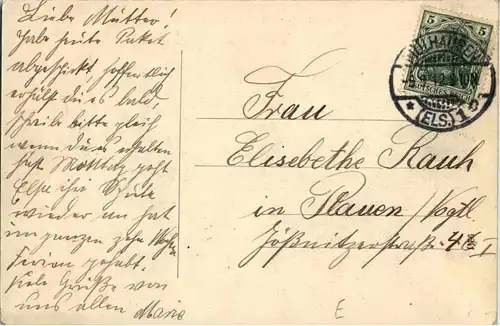 Liebe Mutter!
habe heute Paket
abgeschickt hoffentlich
erhälst du es bald,
schreibe bitte gleich
wenn du es erhalten
hast Montag geht
Elsa ihre Schule
wieder an hat
im ganzen zehn Wochen
Ferien gehabt.
Viele Grüße von
uns allen Marie
5 5
MÜLHAUSEN
* (ELS.) 1
Frau
Elisebethe Rauh
in Plauen / Vogtl
Jößnitzerstraße 46 I
E